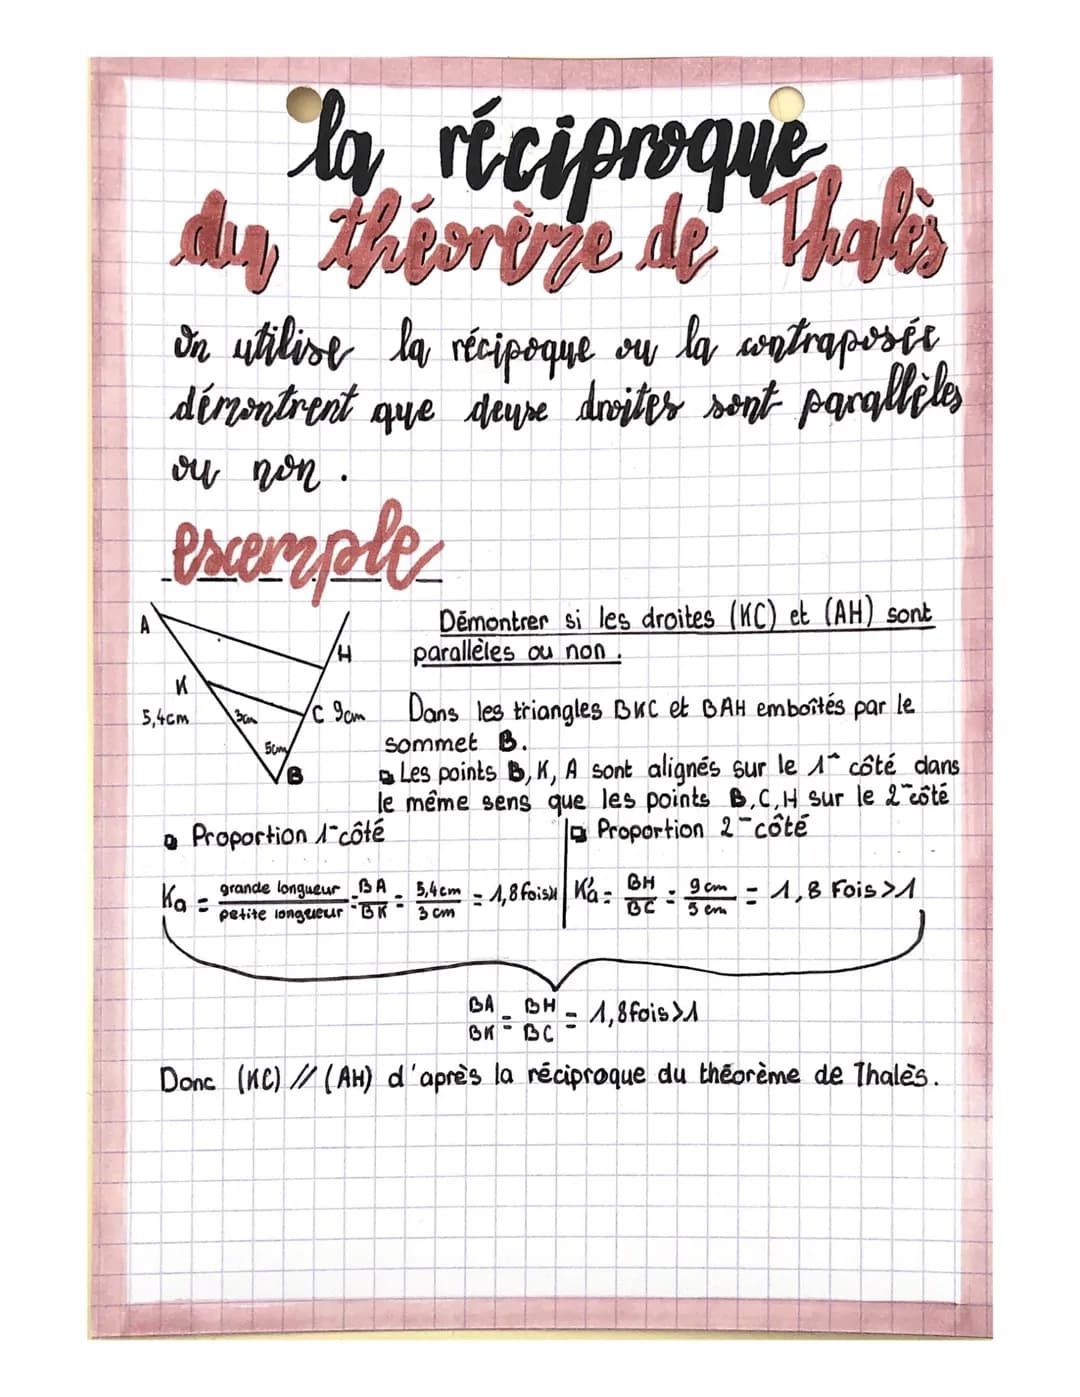 la réciproque
du théorème de Thalès
On utilise la récipoque ou la contraposée
démontrent que deux droites sont parallèles
ou non.
exemple
A
H
K
5,4cm
3cm
C 9cm
5cm
B
Démontrer si les droites (KC) et (AH) sont
parallèles ou non.
Dans les triangles BKC et BAH emboîtés par le
sommet B.
Les points B, K, A sont alignés sur le 1^ côté dans
le même sens que les points B, C, H sur le 2- côté
Proportion 1- côté
Proportion 2- côté
Ka = grande longueur / petite longueur = BA / BK = 5,4cm / 3cm = 1,8 fois>1
K'a = BH / BC = 9cm / 5cm = 1,8 Fois>1
BA / BK = BH / BC = 1,8 fois>1
Donc (KC) // (AH) d'après la réciproque du théorème de Thalès.